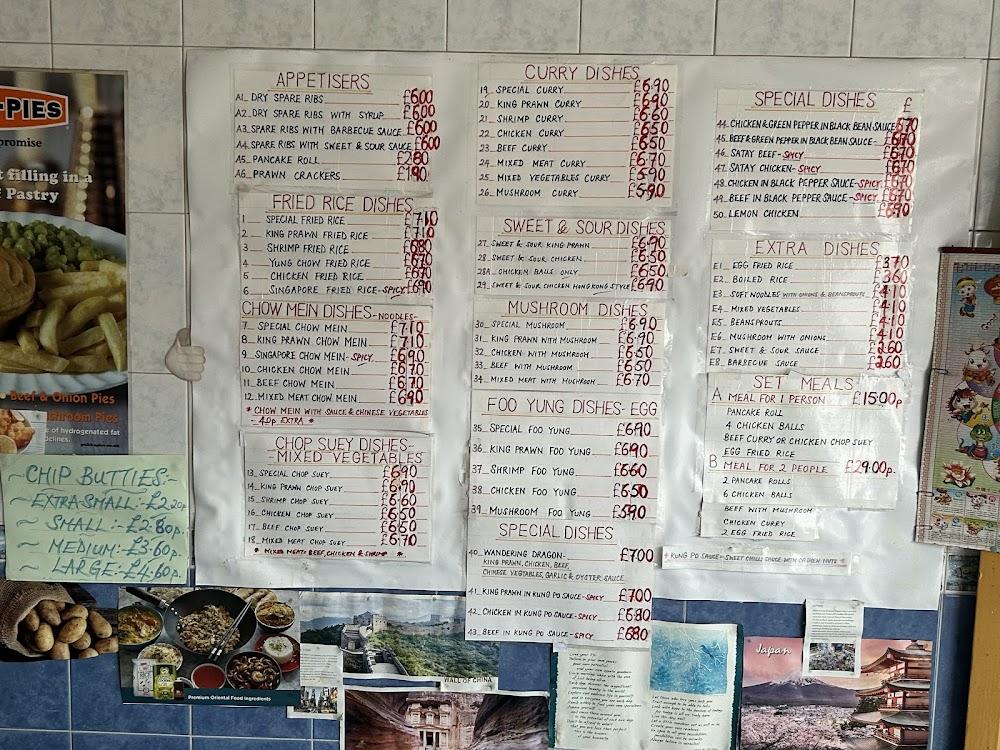 -PIES
promise
t filling in a
Pastry
Beef & Onion Pies
shroom Pies
e of hydrogenated fat
delines.
~CHIP BUTTIES:-
~ EXTRA-SMALL:-£2.20p
~ SMALL:-£2.80p.
~ MEDIUM:-£3.60p.
~ LARGE:-£4.60p.
APPETISERS
A1_ DRY SPARE RIBS £6.00
A2_ DRY SPARE RIBS WITH SYRUP £6.00
A3_ SPARE RIBS WITH BARBECUE SAUCE £6.00
A4_ SPARE RIBS WITH SWEET & SOUR SAUCE £6.00
A5_ PANCAKE ROLL £2.80
A6_ PRAWN CRACKERS £1.90
FRIED RICE DISHES
1_ SPECIAL FRIED RICE £7.10
2_ KING PRAWN FRIED RICE £7.10
3_ SHRIMP FRIED RICE £6.80
4_ YUNG CHOW FRIED RICE £6.70
5_ CHICKEN FRIED RICE £6.70
6_ SINGAPORE FRIED RICE-SPICY £6.90
CHOW MEIN DISHES-NOODLES-
7_ SPECIAL CHOW MEIN £7.10
8_ KING PRAWN CHOW MEIN £7.10
9_ SINGAPORE CHOW MEIN- SPICY £6.90
10_ CHICKEN CHOW MEIN £6.70
11_ BEEF CHOW MEIN £6.70
12_ MIXED MEAT CHOW MEIN £6.90
* CHOW MEIN WITH SAUCE & CHINESE VEGETABLES
- 40p EXTRA *
CHOP SUEY DISHES-
-MIXED VEGETABLES
13_ SPECIAL CHOP SUEY £6.90
14_ KING PRAWN CHOP SUEY £6.90
15_ SHRIMP CHOP SUEY £6.60
16_ CHICKEN CHOP SUEY £6.50
17_ BEEF CHOP SUEY £6.50
18_ MIXED MEAT CHOP SUEY £6.70
* MIXED MEAT= BEEF, CHICKEN & SHRIMP *
CURRY DISHES
19_ SPECIAL CURRY £6.90
20_ KING PRAWN CURRY £6.90
21_ SHRIMP CURRY £6.60
22_ CHICKEN CURRY £6.50
23_ BEEF CURRY £6.50
24_ MIXED MEAT CURRY £6.70
25_ MIXED VEGETABLES CURRY £5.90
26_ MUSHROOM CURRY £5.90
SWEET & SOUR DISHES
27_ SWEET & SOUR KING PRAWN £6.90
28_ SWEET & SOUR CHICKEN £6.50
28A_ CHICKEN BALLS ONLY £6.50
29_ SWEET & SOUR CHICKEN HONG KONG STYLE £6.90
MUSHROOM DISHES
30_ SPECIAL MUSHROOM £6.90
31_ KING PRAWN WITH MUSHROOM £6.90
32_ CHICKEN WITH MUSHROOM £6.50
33_ BEEF WITH MUSHROOM £6.50
34_ MIXED MEAT WITH MUSHROOM £6.70
FOO YUNG DISHES- EGG
35_ SPECIAL FOO YUNG £6.90
36_ KING PRAWN FOO YUNG £6.90
37_ SHRIMP FOO YUNG £6.60
38_ CHICKEN FOO YUNG £6.50
39_ MUSHROOM FOO YUNG £5.90
SPECIAL DISHES
40_ WANDERING DRAGON- £7.00
KING PRAWN, CHICKEN, BEEF,
CHINESE VEGTABLES, GARLIC & OYSTER SAUCE
41_ KING PRAWN IN KUNG PO SAUCE-SPICY £7.00
42_ CHICKEN IN KUNG PO SAUCE-SPICY £6.80
43_ BEEF IN KUNG PO SAUCE-SPICY £6.80
SPECIAL DISHES £
44_ CHICKEN & GREEN PEPPER IN BLACK BEAN SAUCE £6.70
45_ BEEF & GREEN PEPPER IN BLACK BEAN SAUCE- £6.70
46_ SATAY BEEF- SPICY £6.70
47_ SATAY CHICKEN- SPICY £6.70
48_ CHICKEN IN BLACK PEPPER SAUCE-SPICY £6.70
49_ BEEF IN BLACK PEPPER SAUCE-SPICY £6.70
50_ LEMON CHICKEN £6.90
EXTRA DISHES
E1_ EGG FRIED RICE £3.70
E2_ BOILED RICE £3.60
E3_ SOFT NOODLES WITH ONIONS & BEANSPROUTS £4.10
E4_ MIXED VEGETABLES £4.10
E5_ BEANSPROUTS £4.10
E6_ MUSHROOM WITH ONIONS £4.10
E7_ SWEET & SOUR SAUCE £2.60
E8_ BARBECUE SAUCE £2.60
SET MEALS
A MEAL FOR 1 PERSON £15.00p
PANCAKE ROLL
4 CHICKEN BALLS
BEEF CURRY OR CHICKEN CHOP SUEY
EGG FRIED RICE
B MEAL FOR 2 PEOPLE £29.00p
2 PANCAKE ROLLS
6 CHICKEN BALLS
BEEF WITH MUSHROOM
CHICKEN CURRY
2 EGG FRIED RICE
* KUNG PO SAUCE= SWEET CHILLI SAUCE WITH CASHEW NUTS *
Premium Oriental Food Ingredients
WALL OF CHINA
Japan